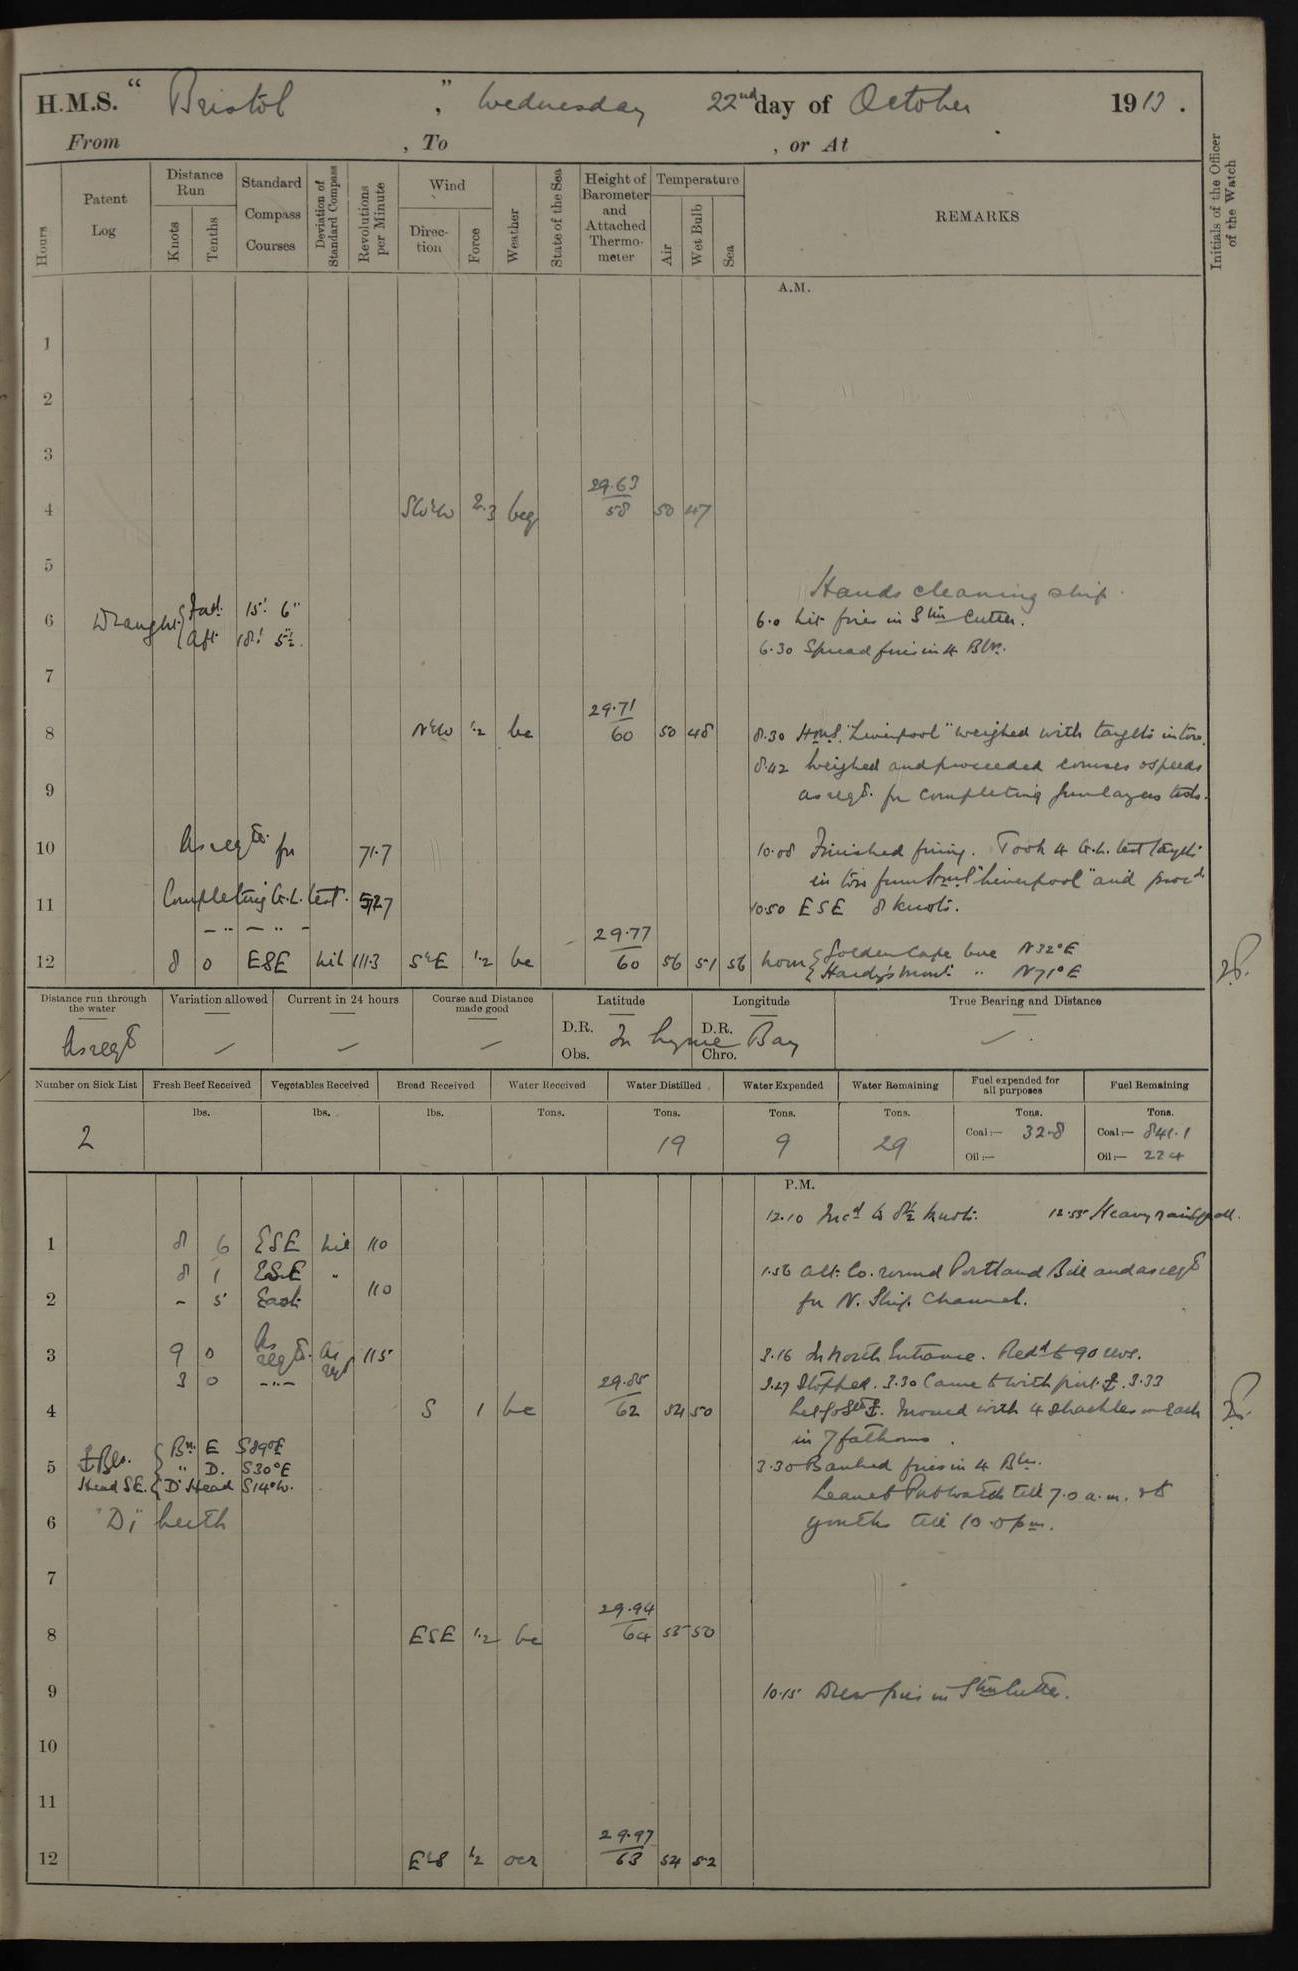 H.M.S. " Bristol ", Wednesday 22nd day of October 1913.
From , To , or At
Hours
Patent Log
Distance Run
Knots
Tenths
Standard Compass Courses
Deviation of Standard Compass
Revolutions per Minute
Wind
Direction
Force
Weather
State of the Sea
Height of Barometer and Attached Thermometer
Temperature
Air
Wet Bulb
Sea
REMARKS
Initials of the Officer of the Watch
A.M.
1
2
3
29.63
4 SW'W 2.3 bcq 58 50 47
5
Hands cleaning ship.
6 Draught { Ford. 15' 6" 6.0 Lit fires in Stm Cutter.
Aft 18' 5½". 6.30 Spread fires in 4 Blrs.
7
29.71
8 N'W 1.2 bc 60 50 48 8.30 H.M.S. "Liverpool" weighed with targets in tow.
8.42 Weighed and proceeded courses & speeds
9 as reqd. for completing Gunlayers tests.
10 As reqd. for 71.7 10.08 Finished firing. Took 4 G.L. test targets
in tow from H.M.S. "Liverpool" and procd.
11 Completing G.L. test. 52.7 10.50 ESE 8 knots.
29.77
12 8 0 ESE Nil 111.3 S'E 1.2 bc 60 56 51 56 noon { Golden Cape bore N32°E
Hardy's Mont. " N71°E
Distance run through the water
Variation allowed
Current in 24 hours
Course and Distance made good
Latitude
Longitude
True Bearing and Distance
As reqd
D.R. D.R.
In Lyme Bay
Obs. Chro.
Number on Sick List
Fresh Beef Received
Vegetables Received
Bread Received
Water Received
Water Distilled
Water Expended
Water Remaining
Fuel expended for all purposes
Fuel Remaining
lbs. lbs. lbs. Tons. Tons. Tons. Tons. Tons. Tons.
2 19 9 29 Coal:— 32.8 Coal:— 841.1
Oil:— Oil:— 224
P.M.
12.10 Incd to 8½ knots. 12.55 Heavy rain squall.
1 8 6 ESE Nil 110
8 1 ESE " 1.56 Alt. Co. round Portland Bill and as reqd
2 - 5 East 110 for N. Ship Channel.
3 9 0 As reqd. As reqd 115 3.16 In North Entrance. Redd to 90 revs.
3 0 29.85 3.27 Stopped. 3.30 Came to with port ⚓. 3.33
4 S 1 bc 62 54 50 Let go Stbd ⚓. Moored with 4 shackles on each
in 7 fathoms.
⚓ Bgs. { Bn. E S89°E
5 " D. S30°E 3.30 Banked fires in 4 Blrs.
Head SE. { "D" Head S14°W. Leave to Port watch till 7.0 a.m. &
6 "D1" berth youths till 10.0 pm.
7
29.94
8 ESE 1.2 bc 64 55 50
9 10.15 Drew fires in Stm Cutter.
10
11
29.97
12 E'S 1.2 ocr 63 54 52